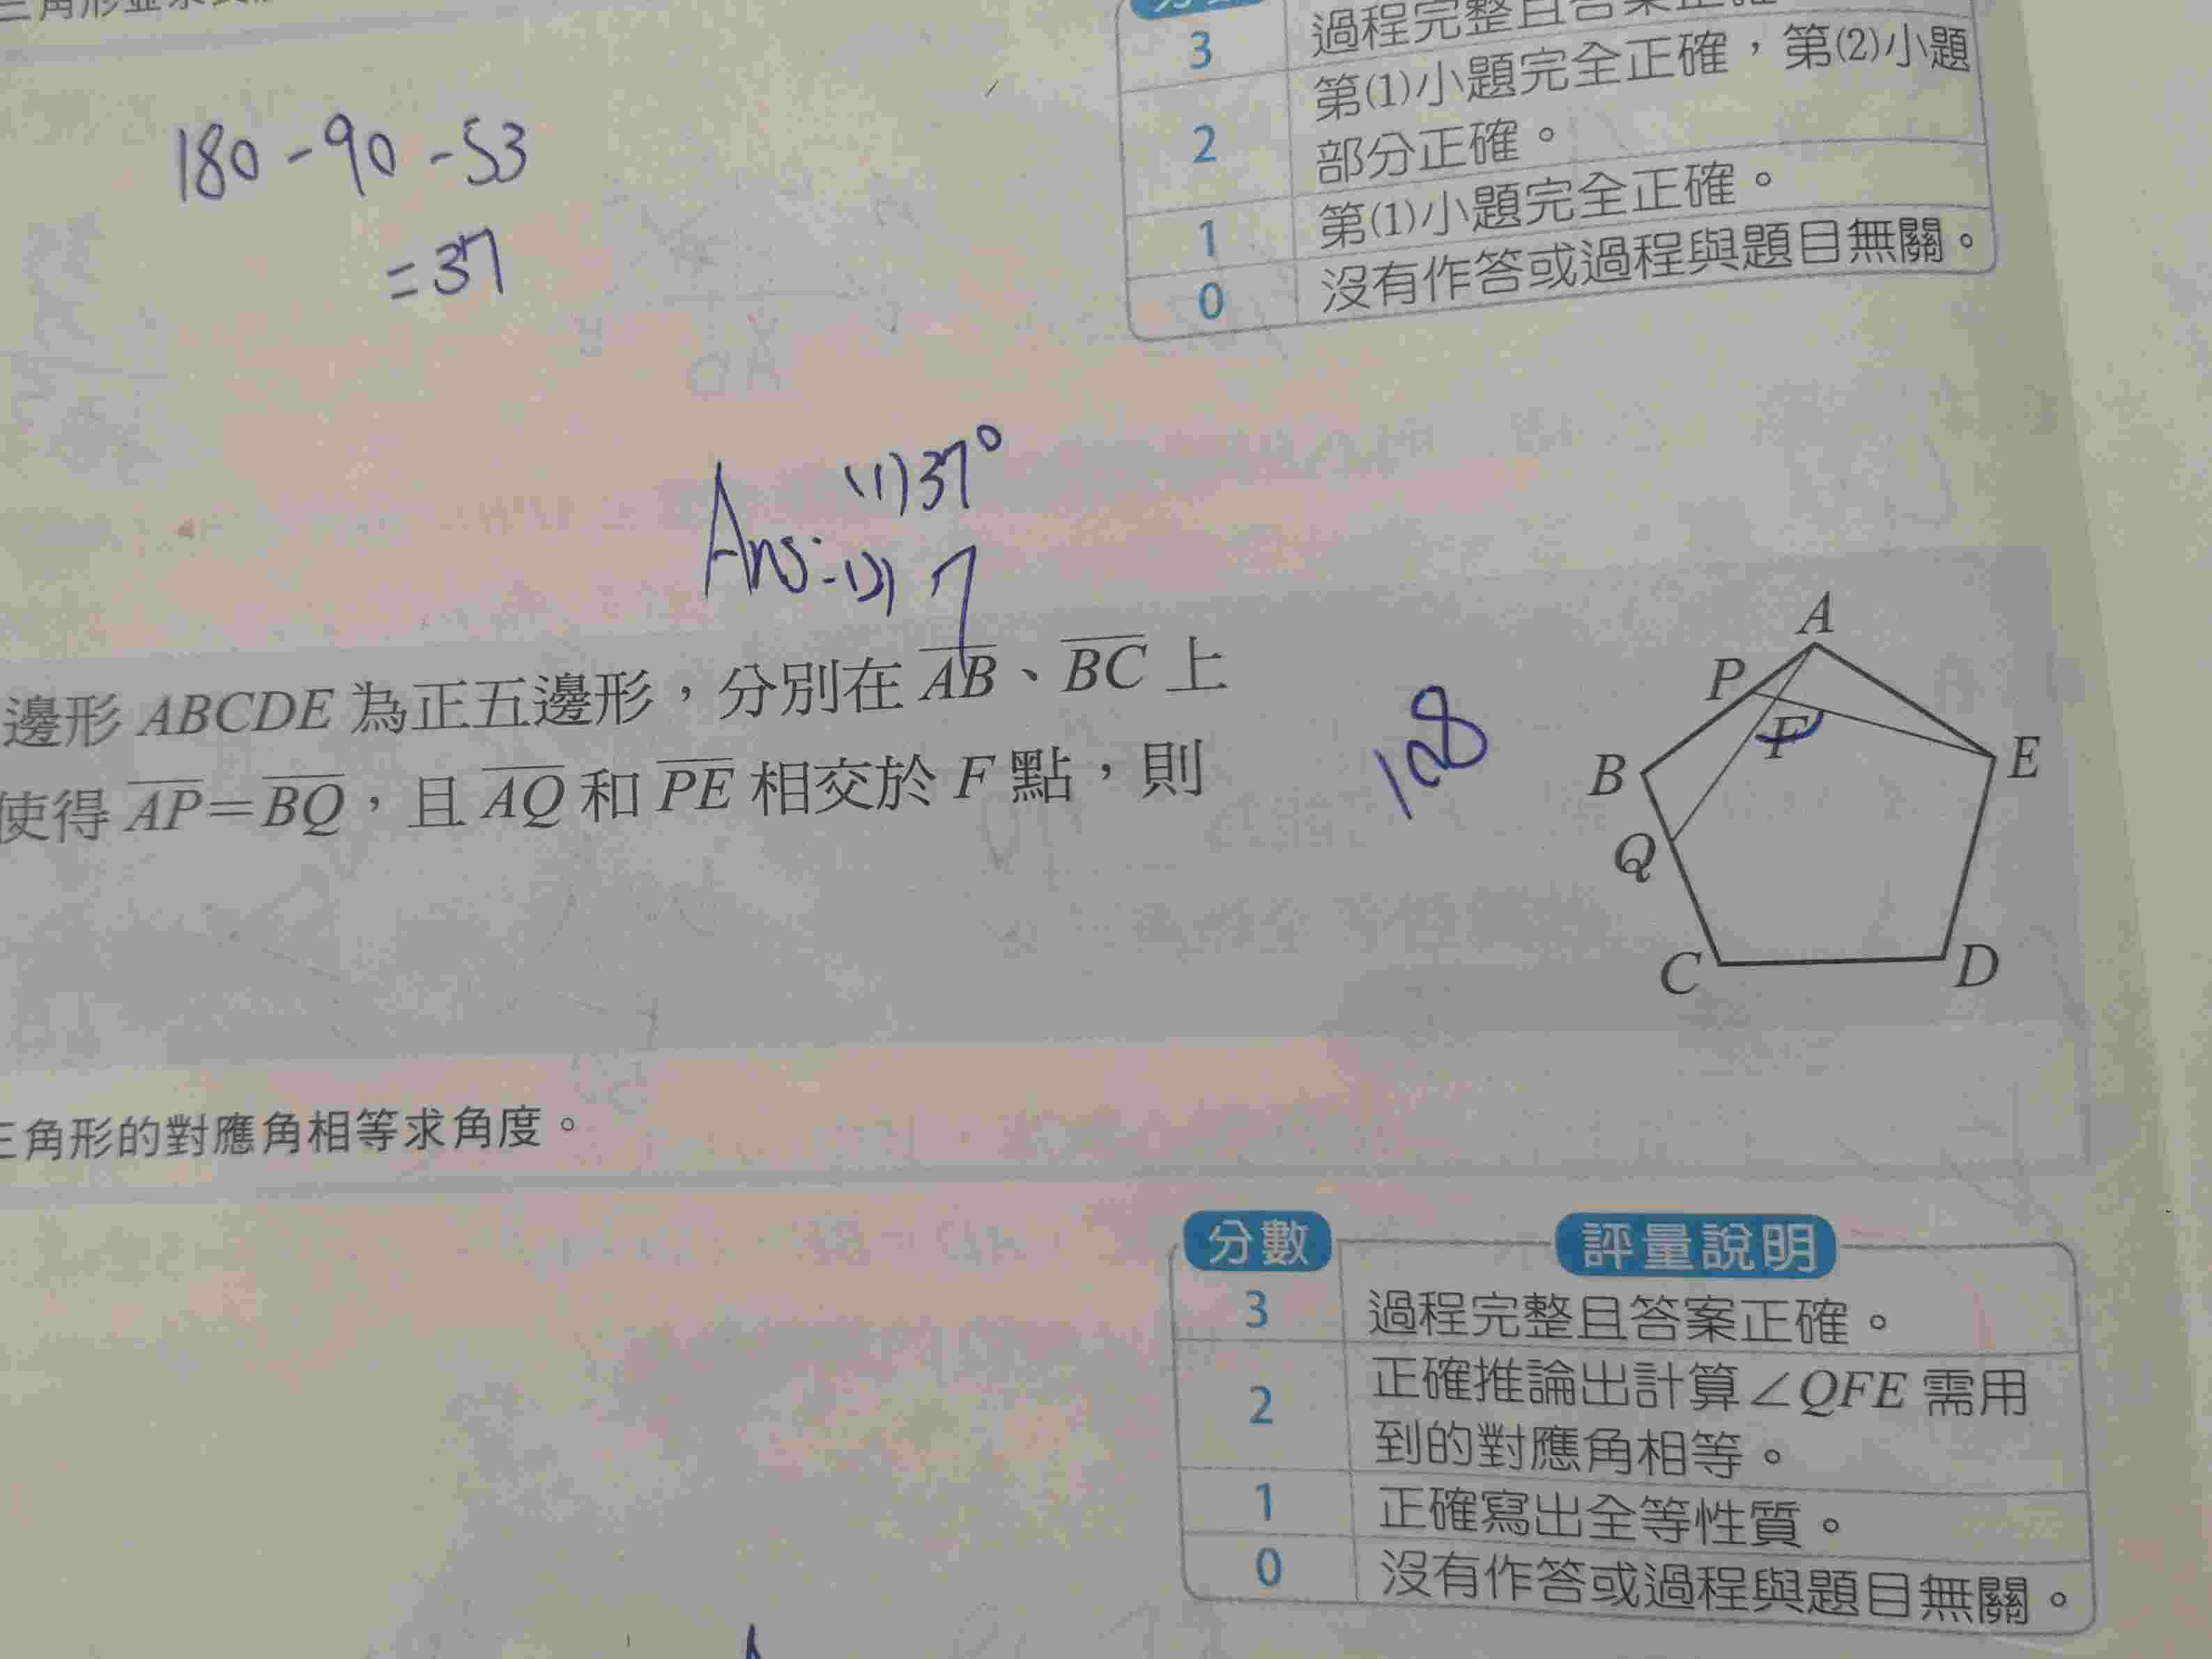 三角形並
3 過程完整且答案正確
2 第(1)小題完全正確，第(2)小題
部分正確。
1 第(1)小題完全正確。
0 沒有作答或過程與題目無關。
180-90-53
=37
Ans: (1)37°
(2) 7
邊形 ABCDE 為正五邊形，分別在 AB、BC 上
使得 AP=BQ，且 AQ 和 PE 相交於 F 點，則
108
A
P
F
B
E
Q
C
D
三角形的對應角相等求角度。
分數 評量說明
3 過程完整且答案正確。
2 正確推論出計算∠QFE 需用
到的對應角相等。
1 正確寫出全等性質。
0 沒有作答或過程與題目無關。